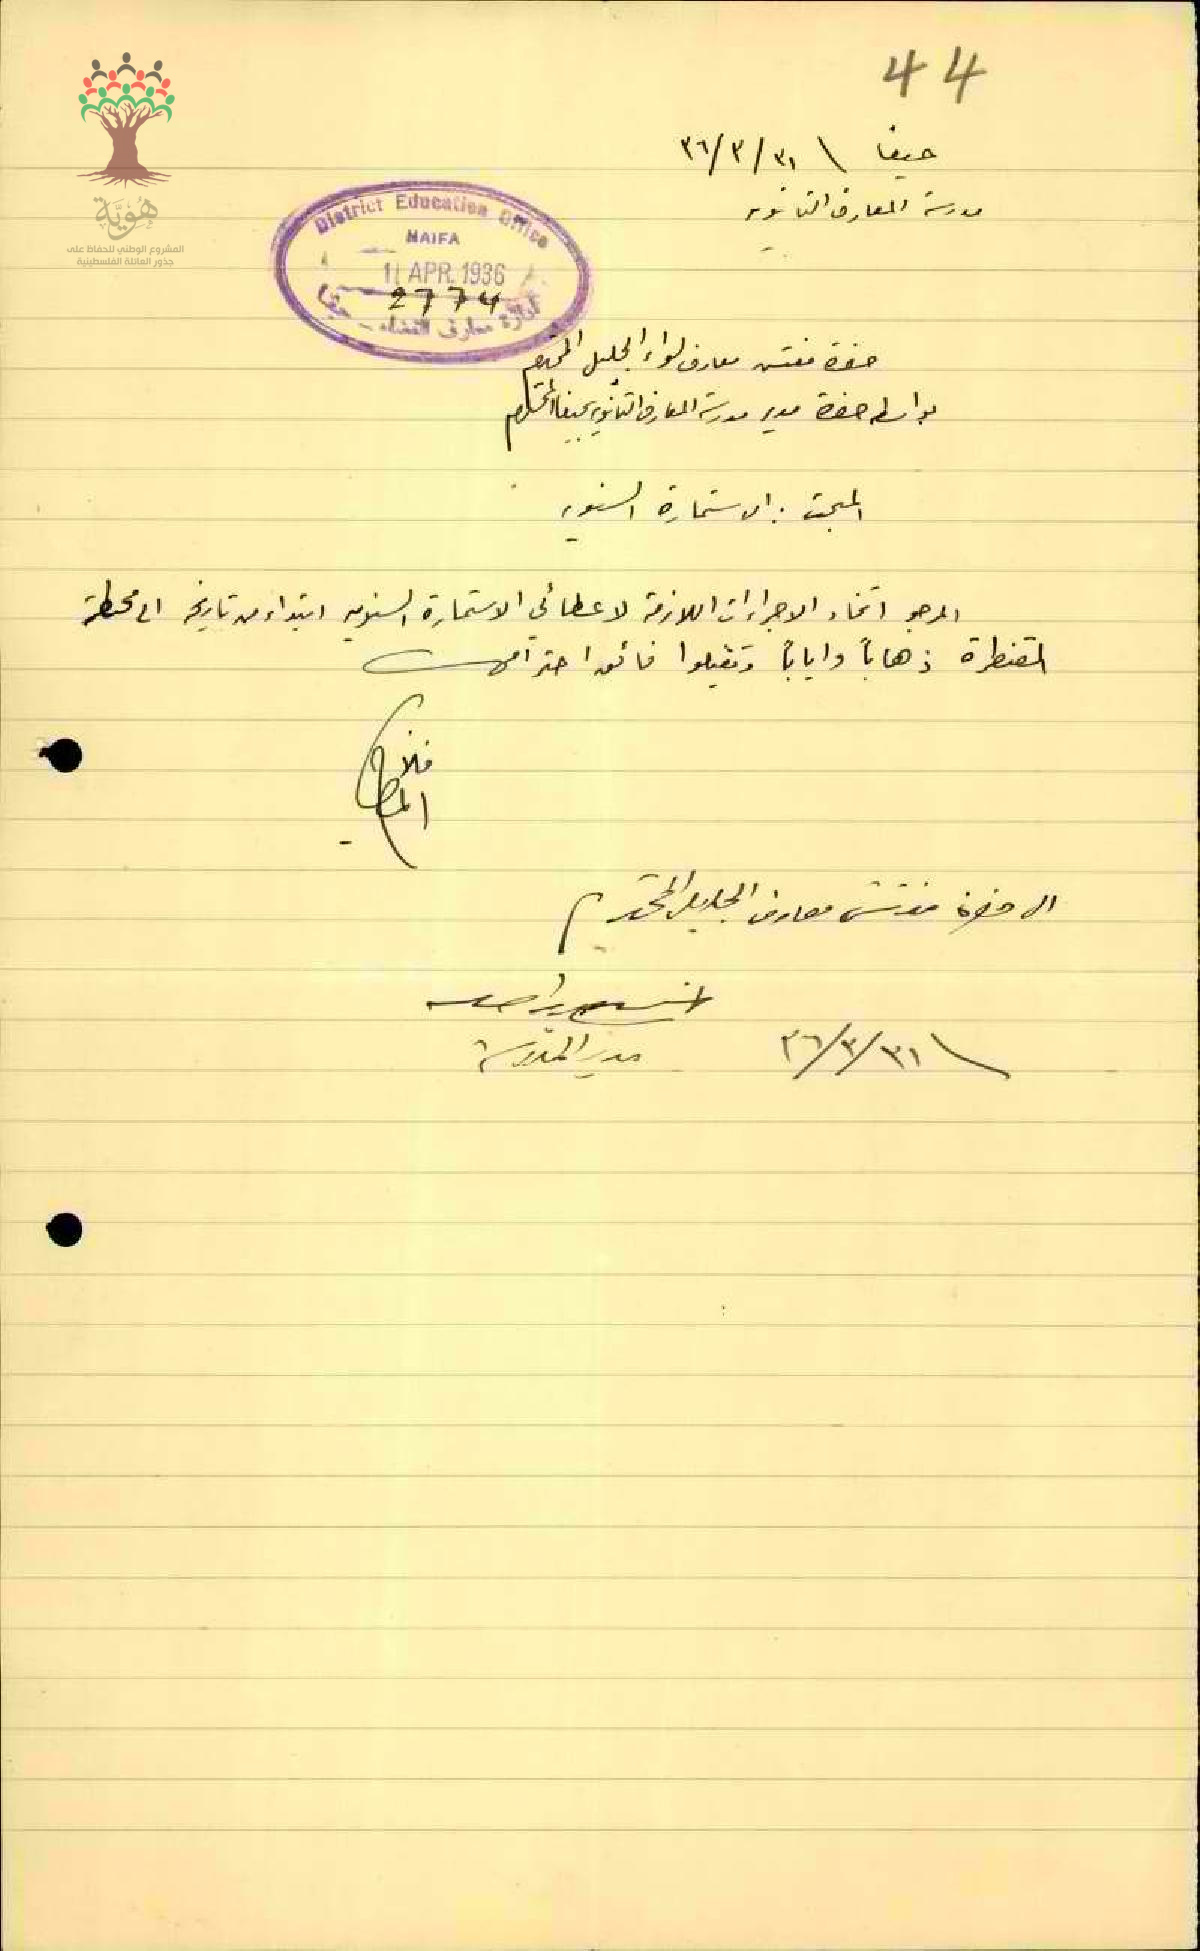 44
هُوِيَّة
المشروع الوطني للحفاظ على
جذور العائلة الفلسطينية
حيفا \ ٣١/٣/٣٦
مدرسة المعارف الثانويه
District Education Office
HAIFA
11 APR. 1936
2774
ادارة معارف القضاء - حيفا
حضرة مفتش معارف لواء الجليل المحترم
بواسطه حضرة مدير مدرسة المعارف الثانويه بحيفا المحترم
المبحث : الاستمارة السنويه
المرجو اتخاذ الاجراءات اللازمة لاعطائي الاستمارة السنويه ابتداء من تاريخه الى محطة
القنطرة ذهاباً واياباً وتقبلوا فائق احترامي
فلاح
الى حضرة مفتش معارف الجليل المحترم
مدير المدرسة
\ ٣١/٣/٣٦